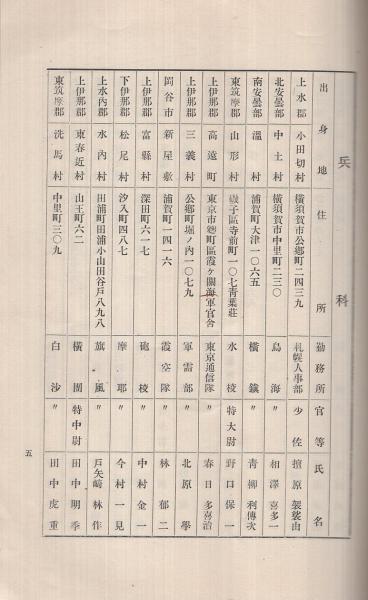 兵科
出身地 住所 勤務所 官等 氏名
上水郡 小田切村 横須賀市公郷町二四三九 札幌人事部 少佐 檀原袈裟由
北安曇郡 中土村 横須賀市中里町二三〇 鳥海 〃 相澤喜多一
南安曇郡 温村 浦賀町大津一〇六五 横鎮 〃 青柳利傳次
東筑摩郡 山形村 磯子區寺前町一〇七青葉荘 水校 特大尉 野口保一
上伊那郡 高遠町 東京市麹町區霞ケ關海軍官舎 東京通信隊 〃 春日多喜治
上伊那郡 三義村 公郷町堀ノ内一〇七九 軍需部 〃 北原學
岡谷市 新屋敷 浦賀町一四一六 霞空隊 〃 林郁二
上伊那郡 富縣村 深田町六一七 砲校 〃 中村金一
下伊那郡 松尾村 汐入町四八七 摩耶 〃 今村一見
上水內郡 水內村 田浦町田浦小山田谷戸八九八 旗風 〃 戸矢崎林作
上伊那郡 東春近村 山王町六二 横團 特中尉 田中明季
東筑摩郡 洗馬村 中里町三〇九 白沙 〃 田中虎重
五